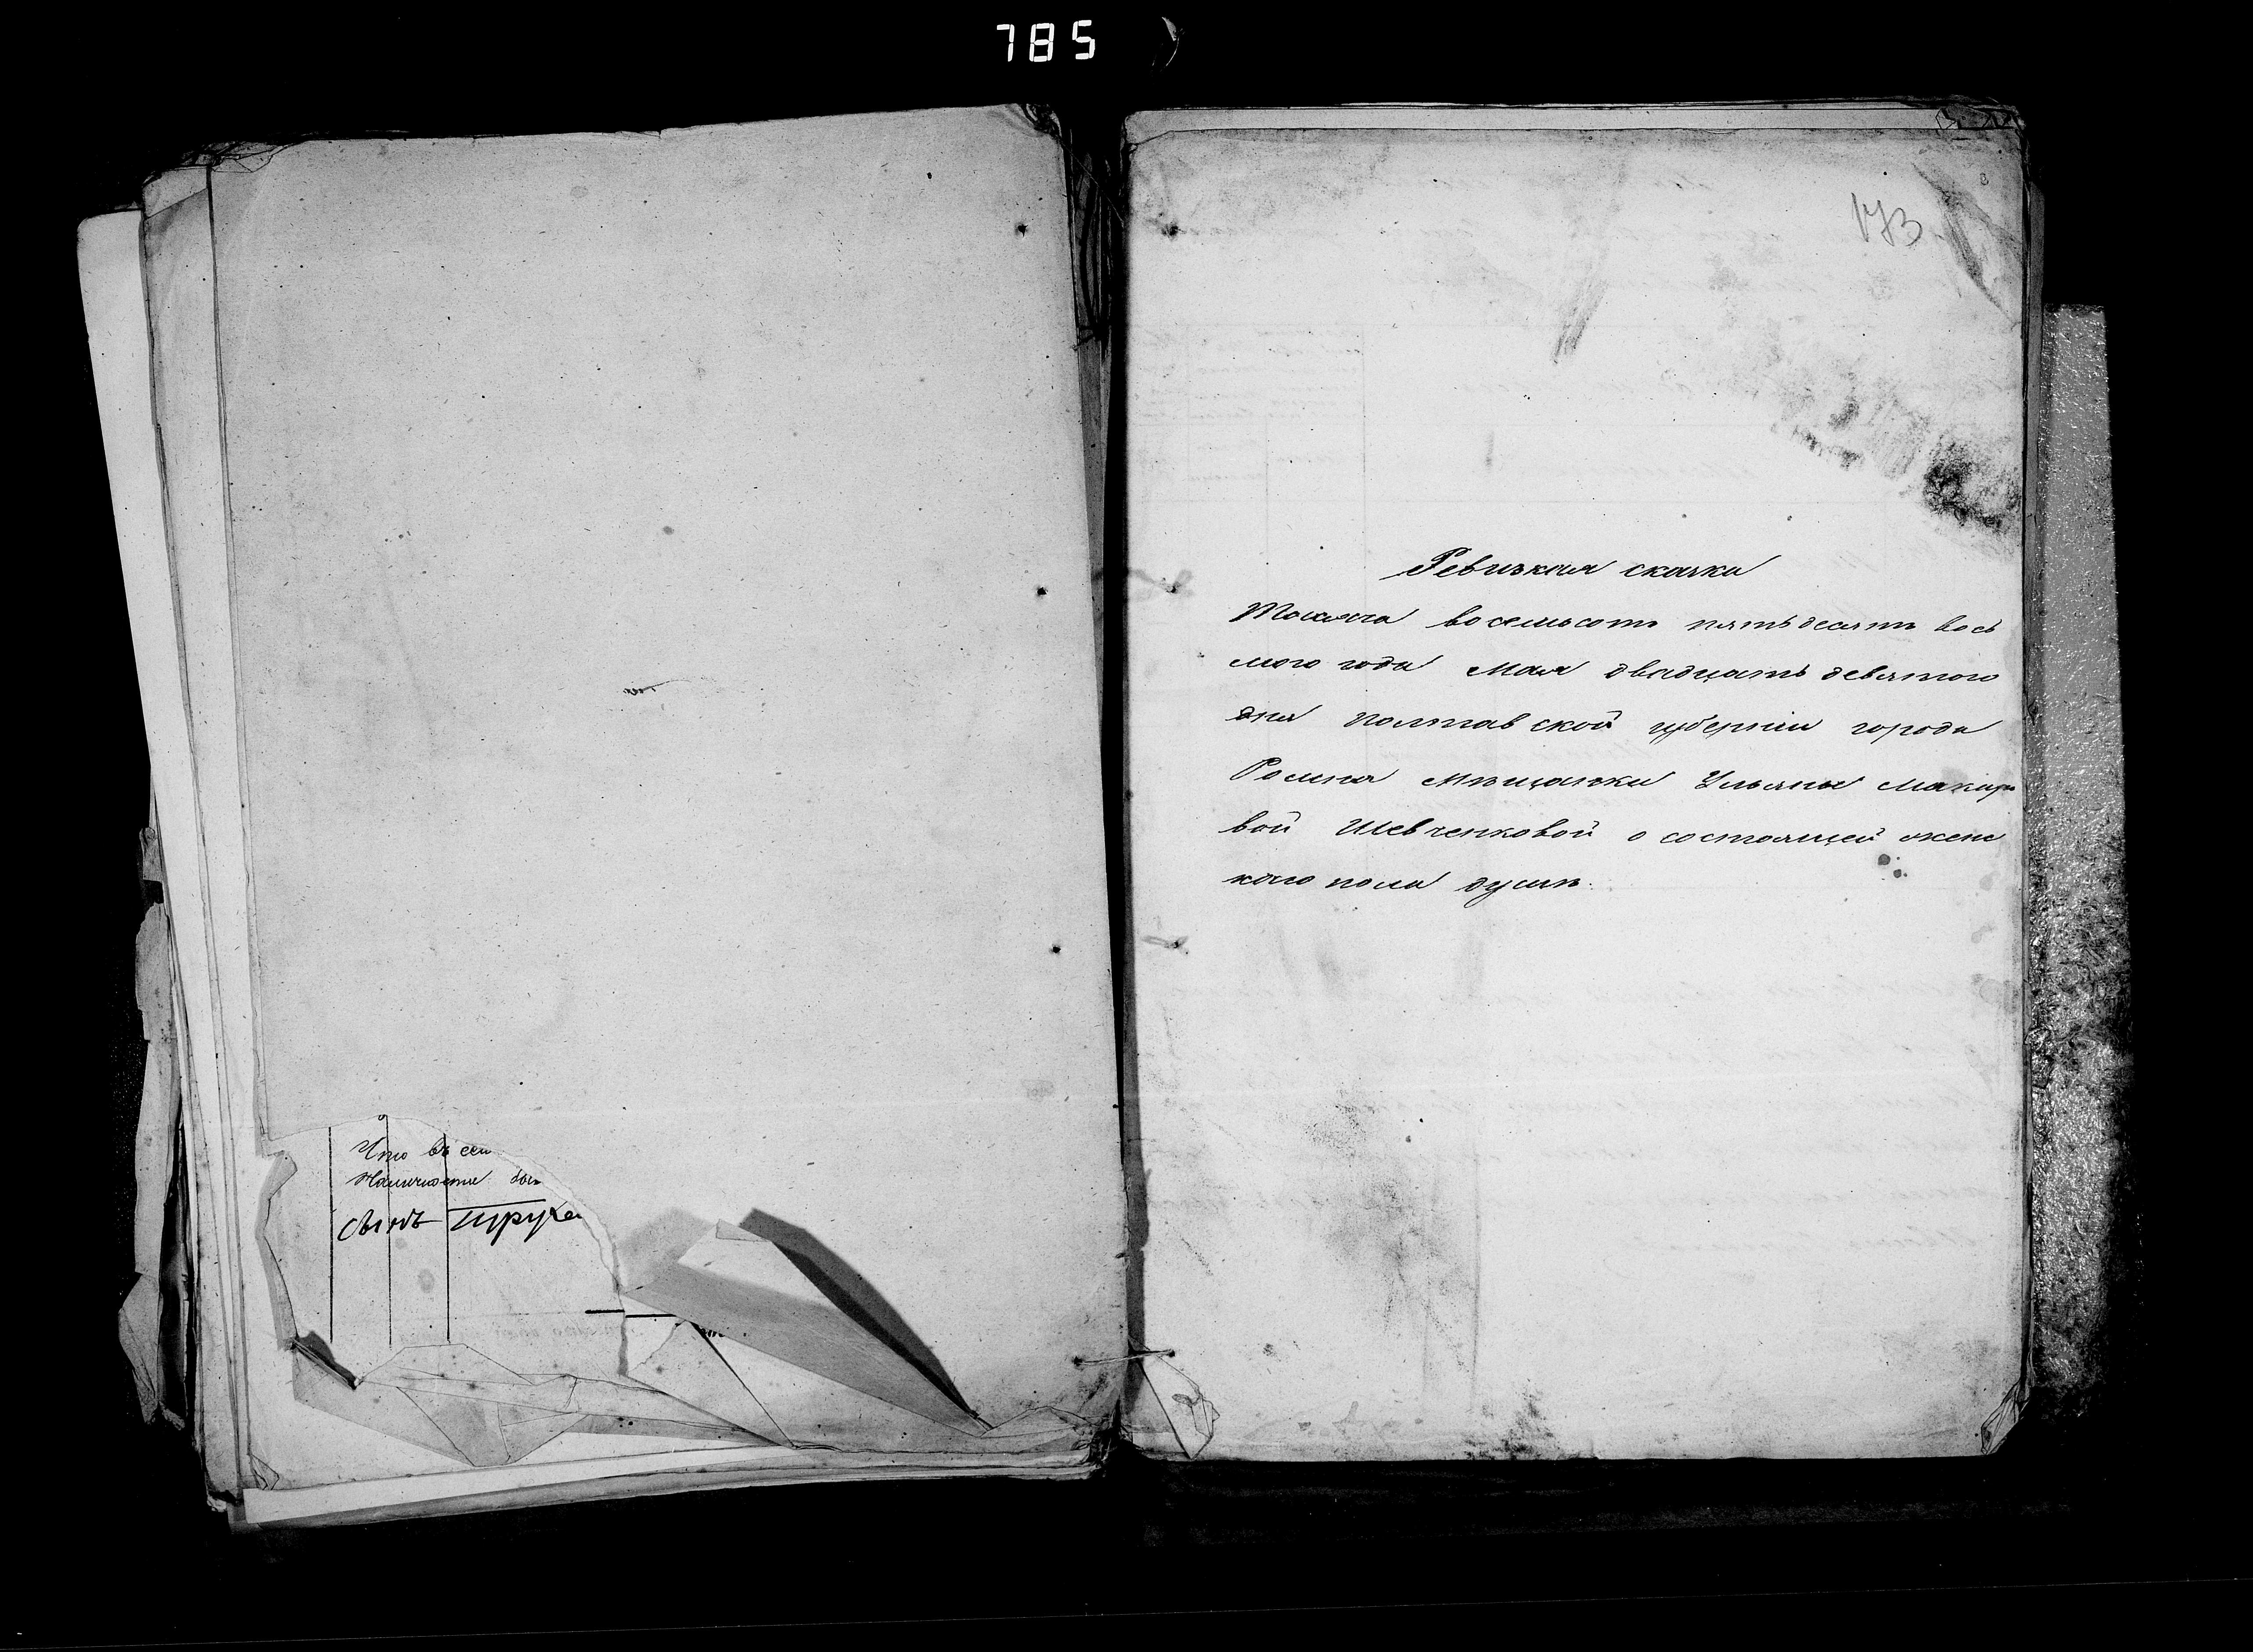 785
173
Что въ се
Наличности
сынъ
Ревизкая сказка
Тысяча восемьсотъ пятьдесятъ вось
мого года Мая двадцать девятого
дня Полтавской губерніи города
Ромна мѣщанки Ульяны Макаро
вой Шевченковой о состоящей женс
кого пола душѣ.